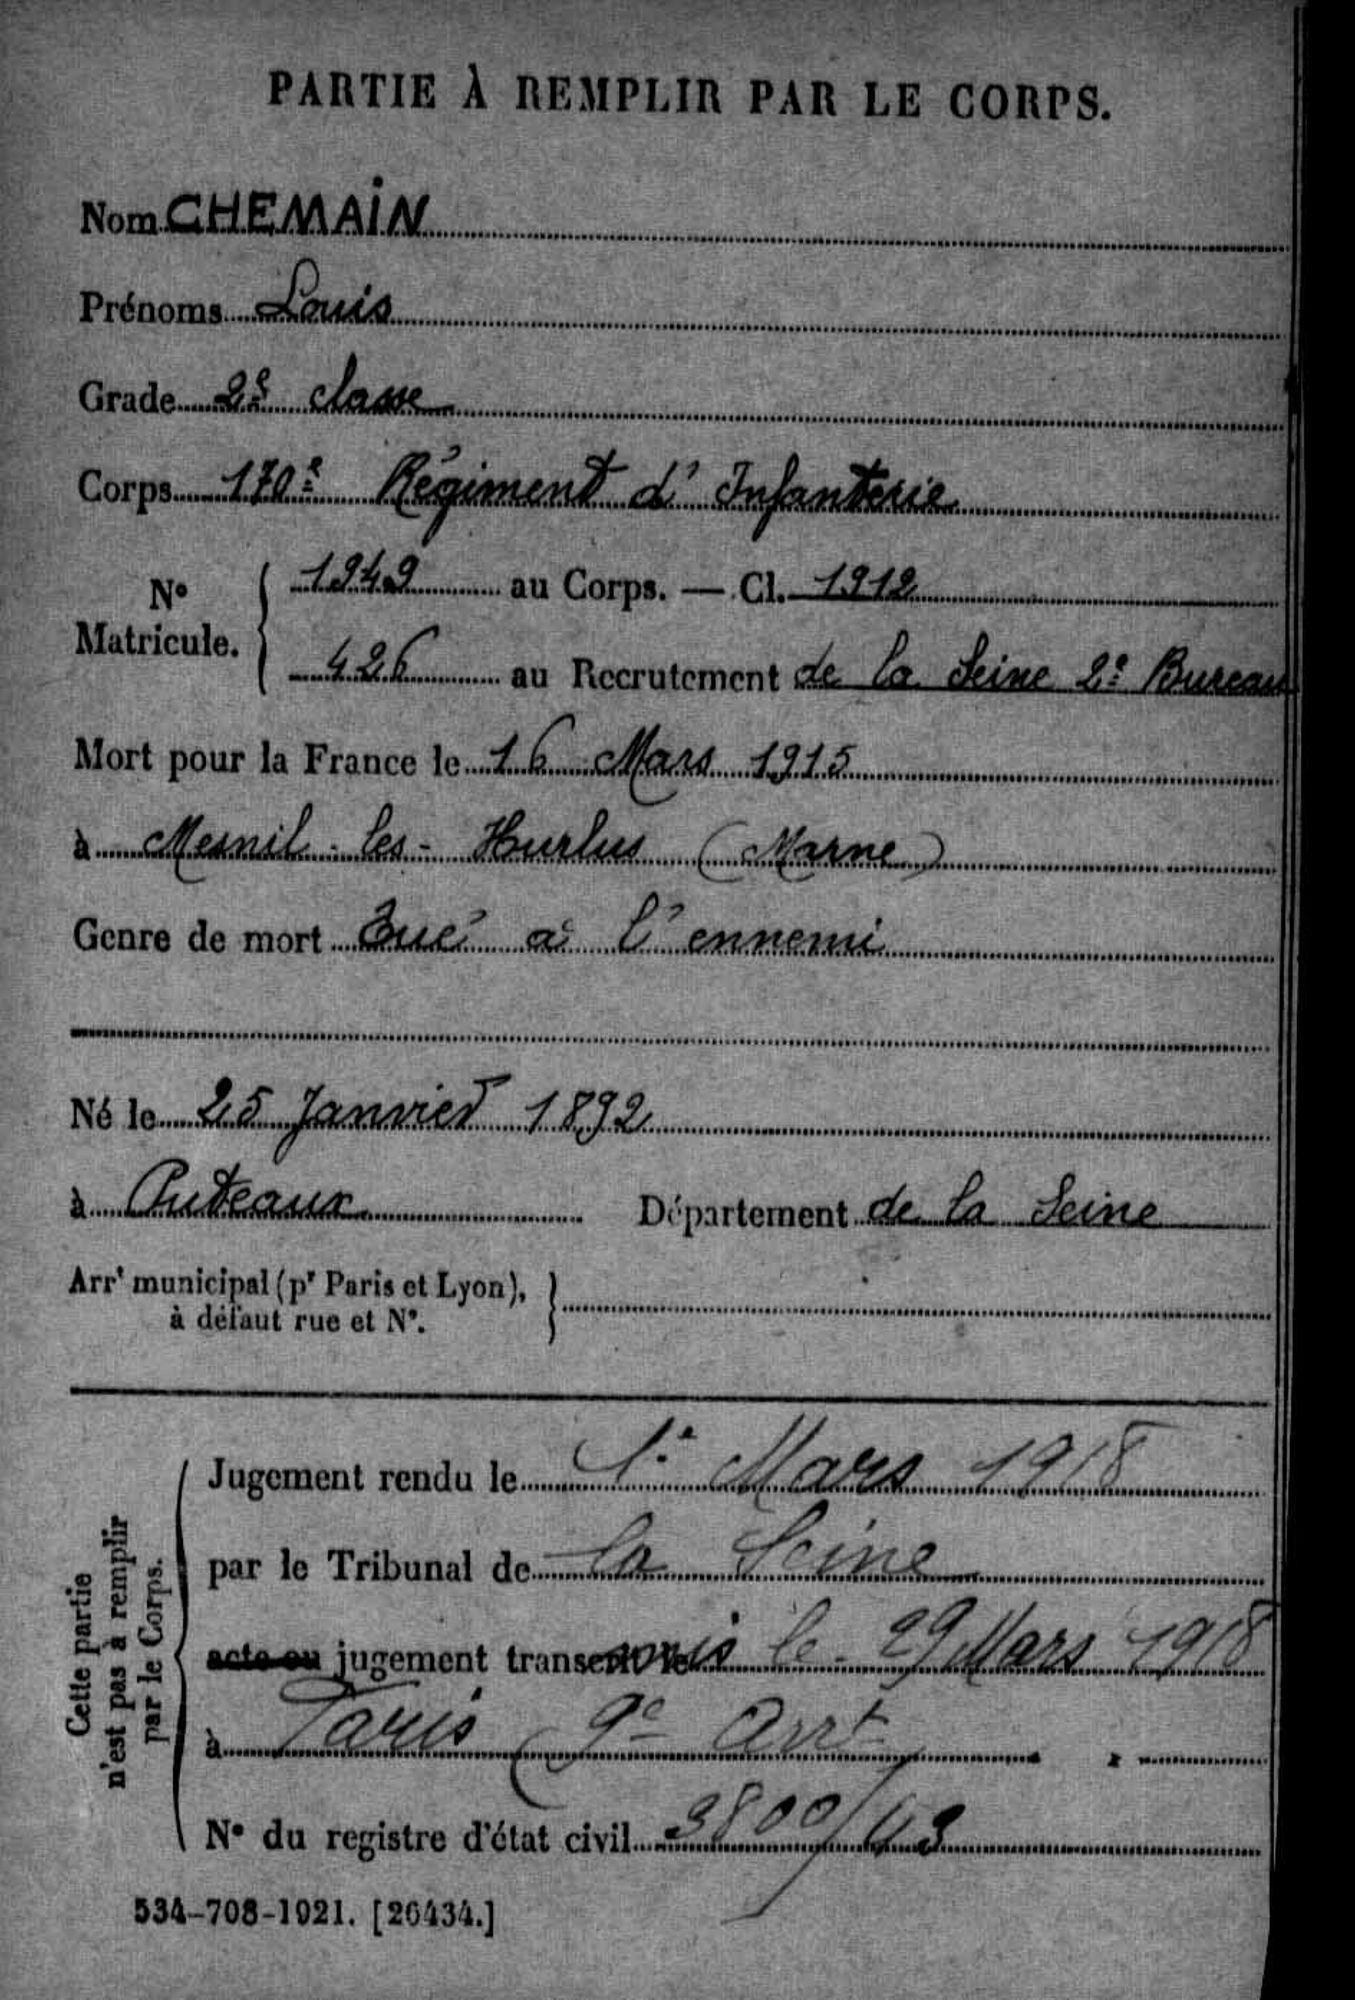 PARTIE À REMPLIR PAR LE CORPS.
Nom CHEMAIN
Prénoms Louis
Grade 2e classe
Corps 170e Régiment d'Infanterie
No Matricule. { 1949 au Corps. — Cl. 1912
426 au Recrutement de la Seine 2e Bureau
Mort pour la France le 16 Mars 1915
à Mesnil-les-Hurlus (Marne)
Genre de mort Tué à l'ennemi
Né le 25 Janvier 1892
à Puteaux Département de la Seine
Arrt municipal (pr Paris et Lyon), à défaut rue et No. }
Cette partie n'est pas à remplir par le Corps.
Jugement rendu le 1er Mars 1918
par le Tribunal de la Seine
acte ou jugement transcrit le 29 Mars 1918
à Paris (9e Arrt)
No du registre d'état civil 3800/43
534-708-1921. [26434.]